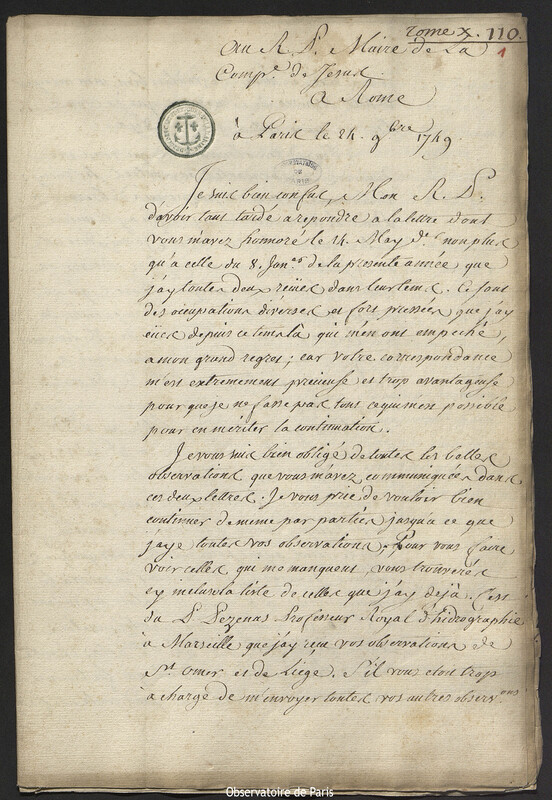 Tome X. 110.
1
Au R. P. Maire de La
Comp.e de Jesus
a Rome
à Paris le 24. 9bre 1749
Je suis bien confus, Mon R. P.
d'avoir tant tardé a repondre a la lettre dont
vous m'avez honnoré le 14. May d.r non plus
qu'a celle du 8. Jan.er de la presente année que
j'ay toutes deux reçües dans leur tems. Ce sont
des ocupations diverses et fort pressées que j'ay
eües depuis ce tems là qui m'en ont empeché,
a mon grand regret; car votre correspondance
m'est extremement précieuse et trop avantageuse
pour que je ne fasse pas tout ce qui m'en possible
pour en mériter la continuation.
Je vous suis bien obligé de toutes les belles
observations que vous m'avez communiquées dans
ces deux lettres. Je vous prie de vouloir bien
continuer de meme par parties jusqu'a ce que
j'aye toutes vos observations. Pour vous faire
voir celles qui me manquent, vous trouverés
cy inclus la liste de celles que j'ay dejà. C'est
du P. Pezenas Professeur Royal d'hidrographie
a Marseille que j'ay reçu vos observations de
St. Omer et de Liège. S'il vous etoit trop
a charge de m'envoyer toutes vos autres observ.ons
Observatoire de Paris